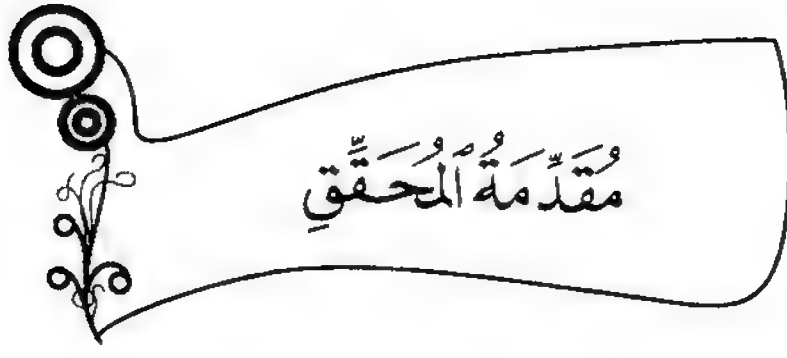 مُقَدِّمَةُ ٱلمُحَقِّقِ